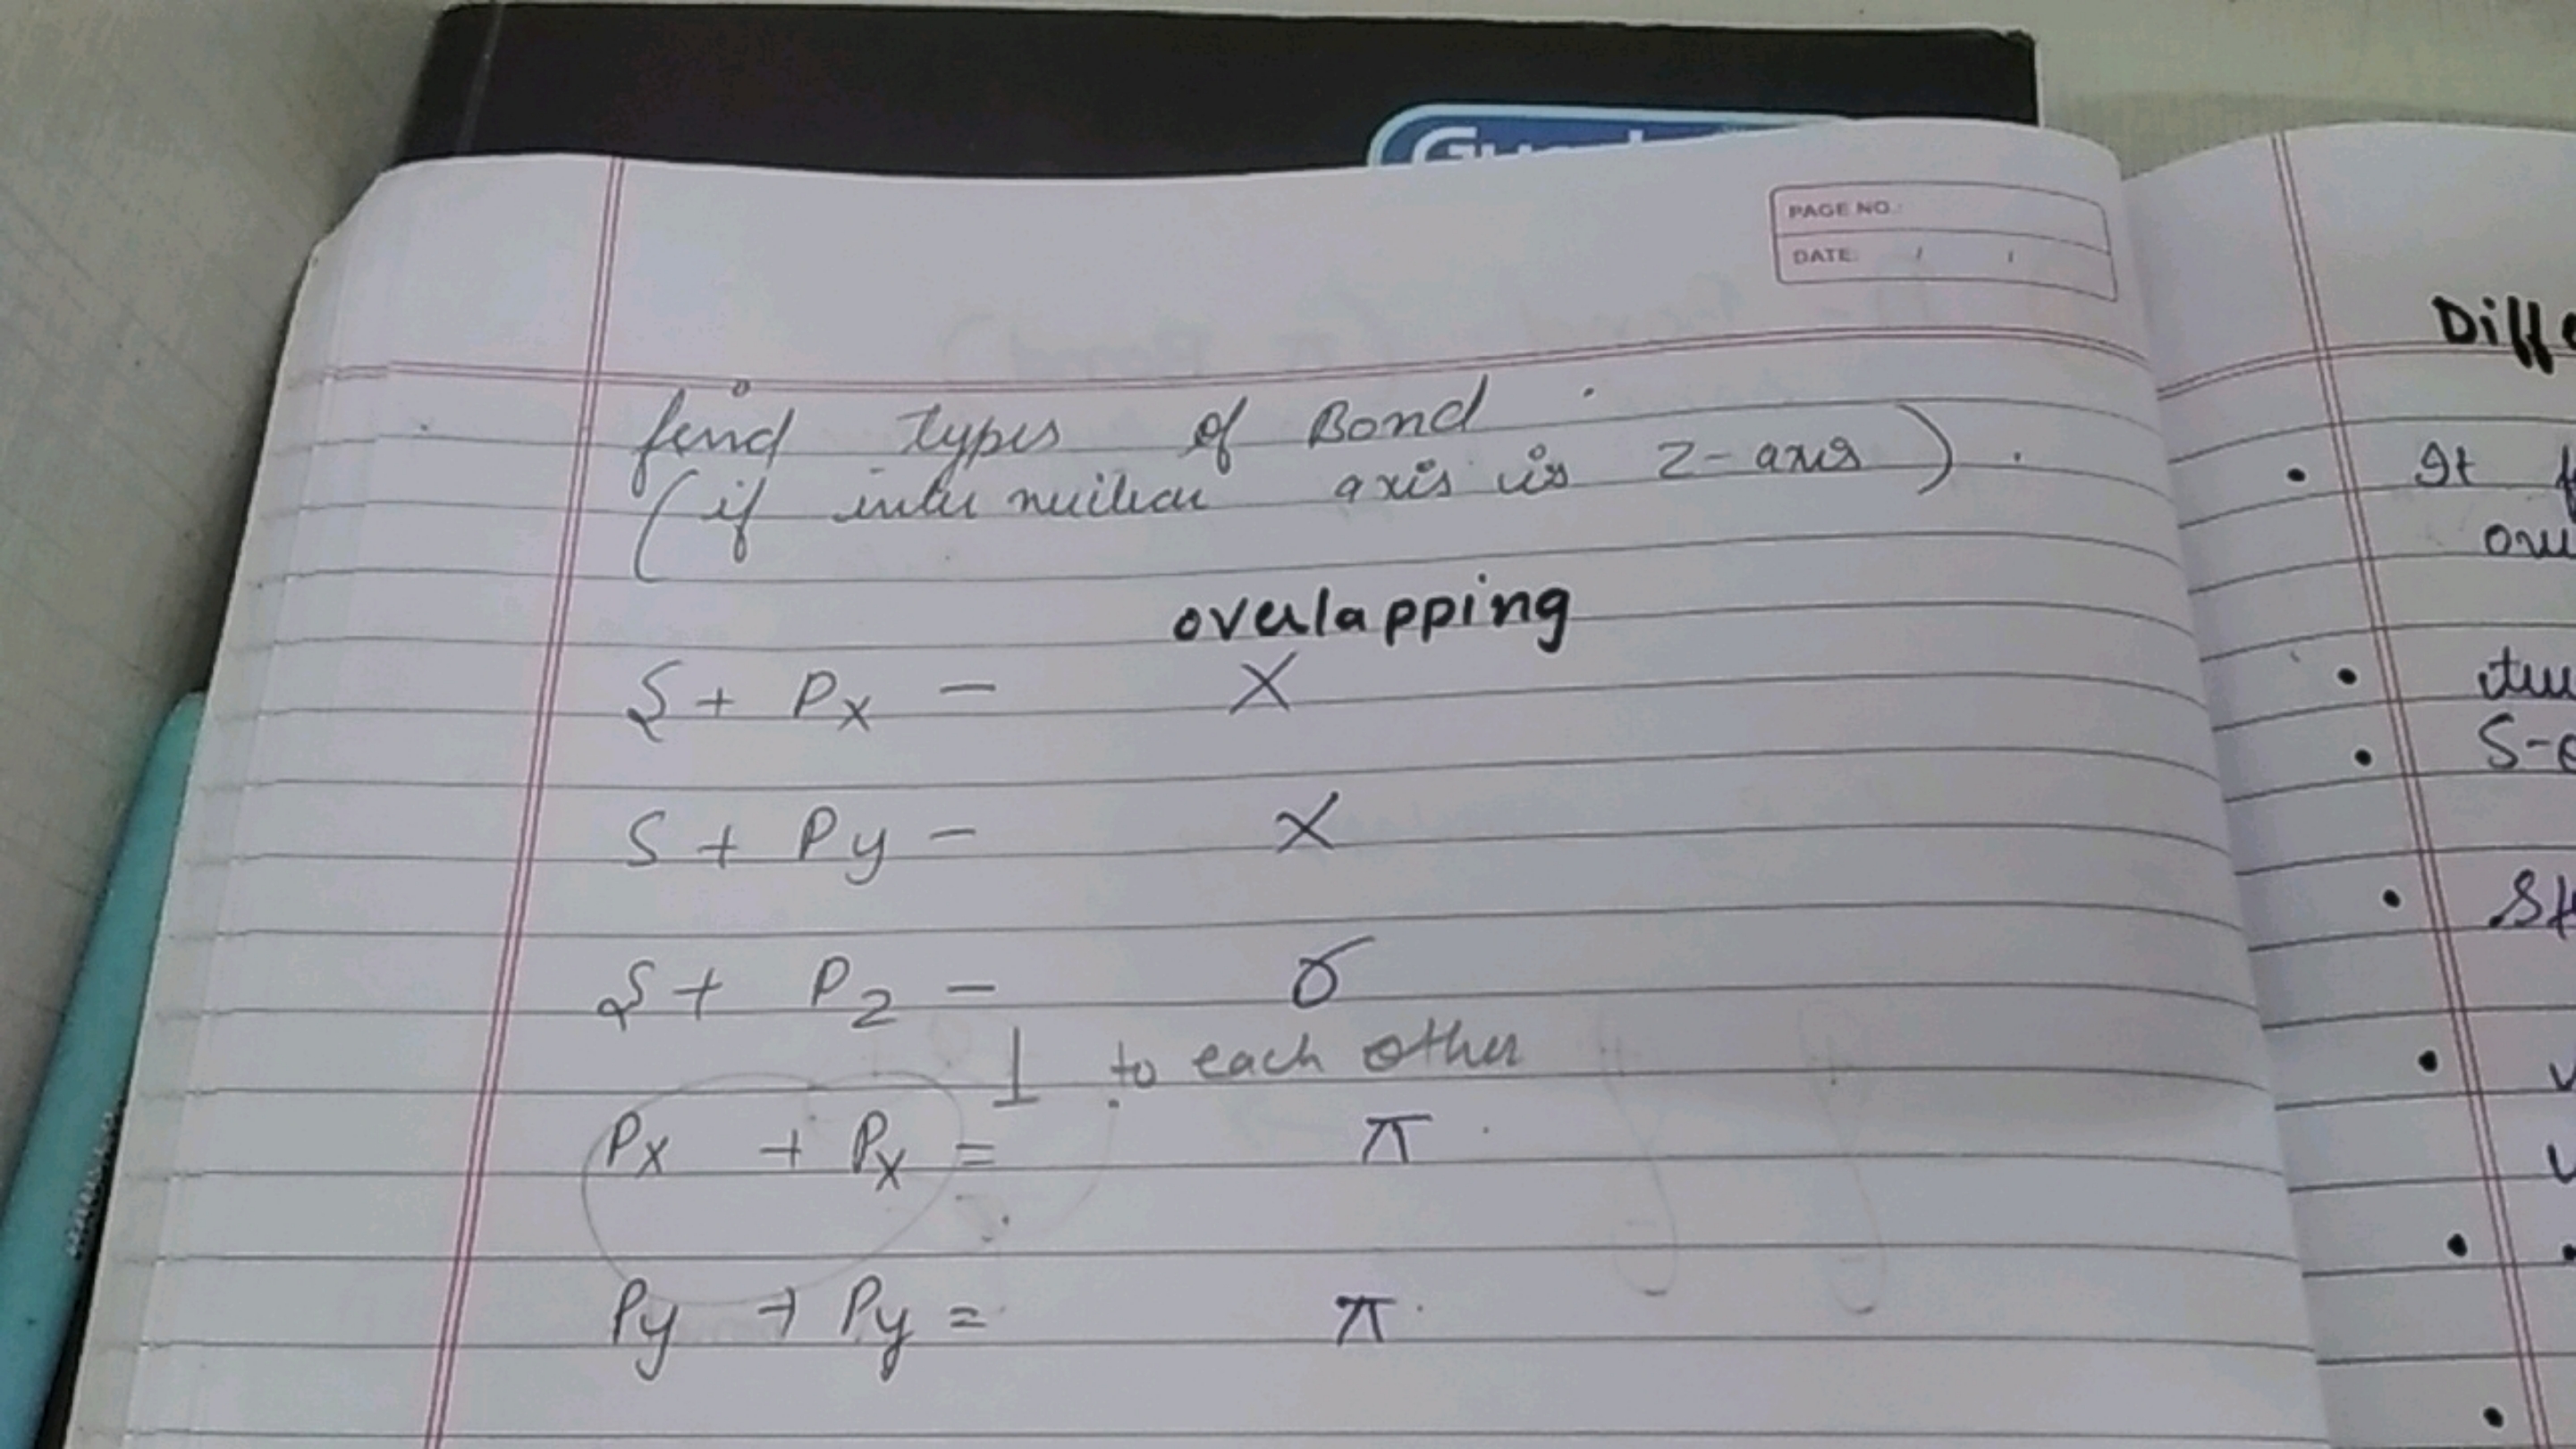 PAGE NO.:
DATE: / /
find types of Bond
(if inter nuclear axis is z-axis).
overlapping
S + Px - X
S + Py - X
S + Pz - σ
⊥ to each other
Px + Px = π
Py + Py = π
Diffe
• It
•
• S-
•
•
•
•